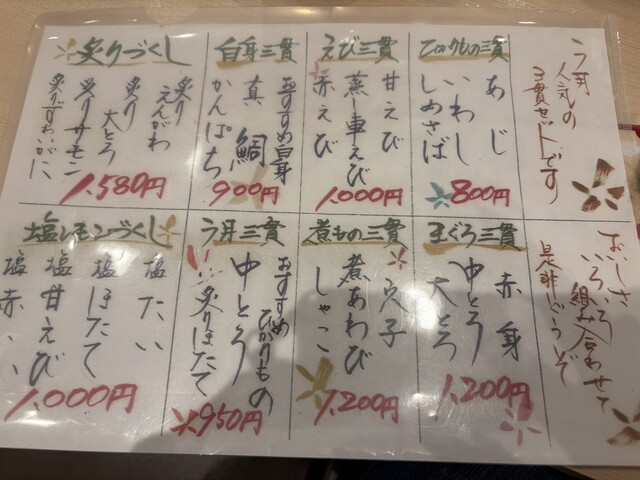 人気の
三貫セットです
ひかりもの三貫
あじ
いわし
しめさば
800円
えび三貫
甘えび
蒸し車えび
赤えび
1,000円
白身三貫
おすすめ白身
真鯛
かんぱち
900円
炙りづくし
炙りえんがわ
炙り大とろ
炙りサーモン
炙りずわいがに
1,580円
おいしさ
いろいろ
組み合わせて
是非どうぞ
まぐろ三貫
赤身
中とろ
大とろ
1,200円
煮もの三貫
穴子
煮あわび
しゃこ
1,200円
三貫
おすすめひかりもの
中とろ
炙りほたて
950円
塩レモンづくし
塩たい
塩ほたて
塩甘えび
塩赤いか
1,000円